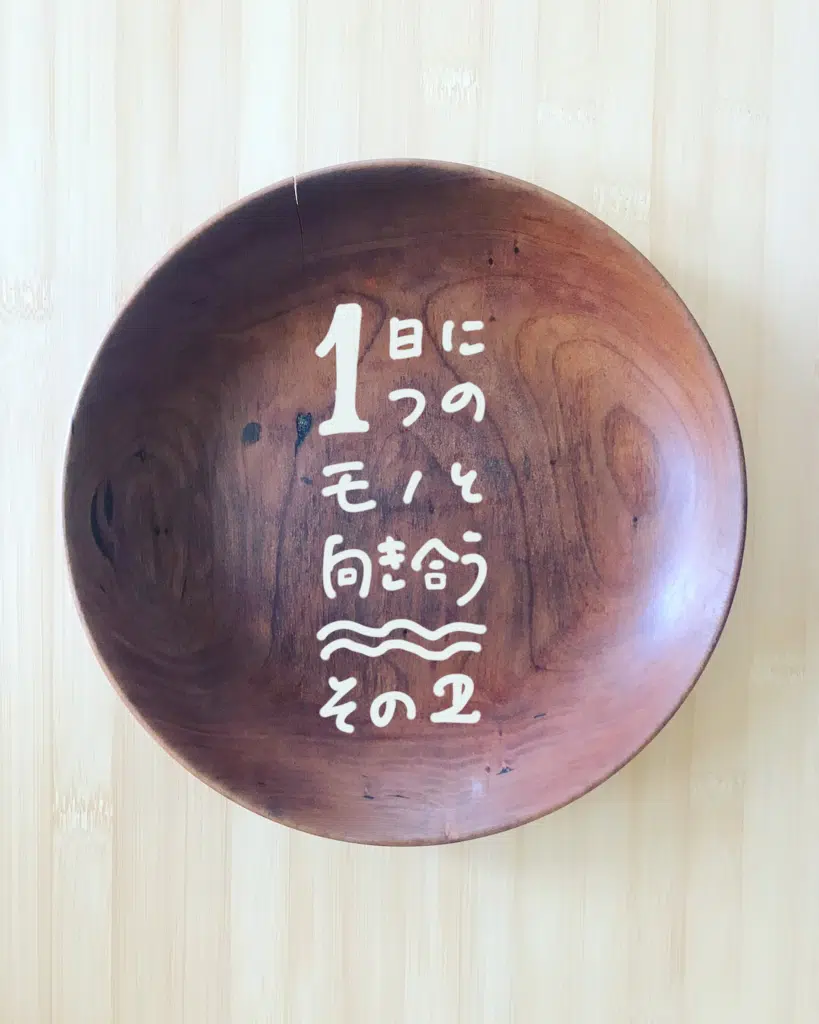 1日に
つの
モノと
向き合う
その2